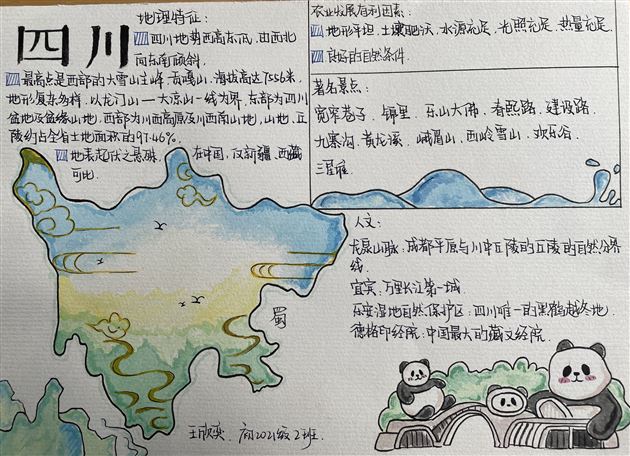 四川
地理特征:
四川地势西高东低,由西北
向东南倾斜.
最高点是西部的大雪山主峰 贡嘎山,海拔高达7556米,
地形复杂多样,以龙门山——大凉山一线为界,东部为四川
盆地及盆缘山地,西部为川西高原及川西南山地,山地、丘
陵约占全省土地面积的97.46%
地表起伏之悬殊 在中国,仅新疆、西藏
可比
农业发展有利因素:
地形平坦,土壤肥沃,水源充足,光照充足,热量充足.
良好的自然条件.
著名景点:
宽窄巷子、锦里、乐山大佛、春熙路、建设路、
九寨沟、黄龙溪、峨眉山、西岭雪山、欢乐谷、
三星堆
人文:
龙泉山脉:成都平原与川中丘陵的丘陵的自然分界
线
宜宾:万里长江第一城
湿地自然保护区:四川唯一的黑鹤越冬地
德格印经院:中国最大的藏文经院.
蜀
王欣 2021级2班.